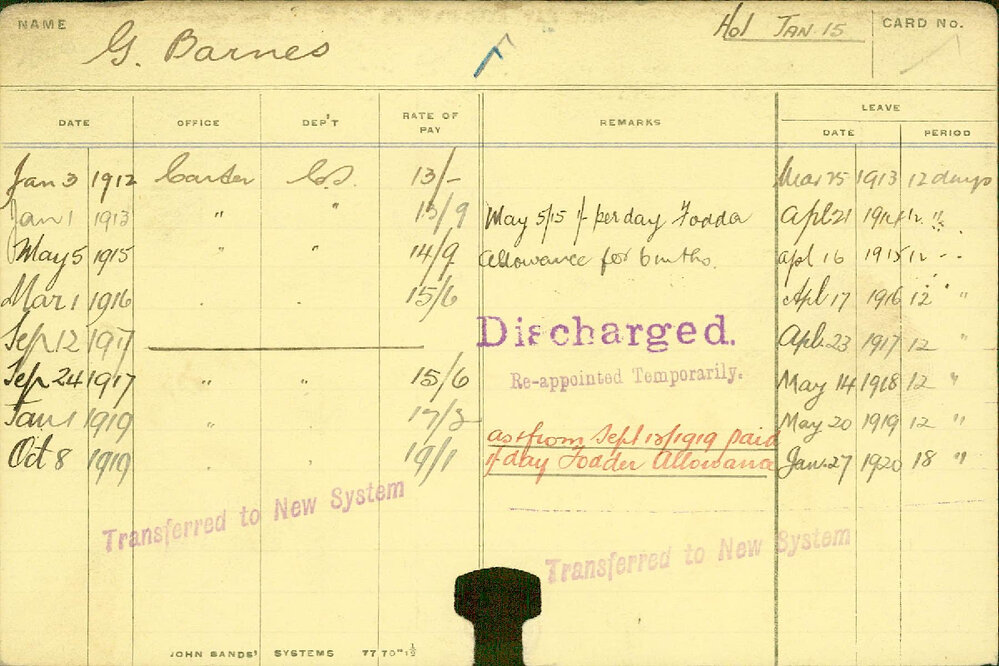 NAME G. Barnes Hol JAN. 15 CARD No.
DATE OFFICE DEP'T RATE OF PAY REMARKS LEAVE
DATE PERIOD
Jan 3 1912 Carter 13/- Mar 25 1913 12 days
Jan 1 1913 " " 13/9 May 5/15 1/- per day Fodder Apl 21 1914 12 "
May 5 1915 " " 14/9 Allowance for 6 mths. Apl 16 1915 12 "
Mar 1 1916 15/6 Apl 17 1916 12 "
Sep 12 1917 Discharged. Apl 23 1917 12 "
Sep 24 1917 " " 15/6 Re-appointed Temporarily. May 14 1918 12 "
Jan 1 1919 " 17/3 May 20 1919 12 "
as from Sept 12/1919 paid
Oct 8 1919 19/1 1/- day Fodder Allowance Jan. 27 1920 18 "
Transferred to New System
Transferred to New System
JOHN SANDS' SYSTEMS 77 TO"1½